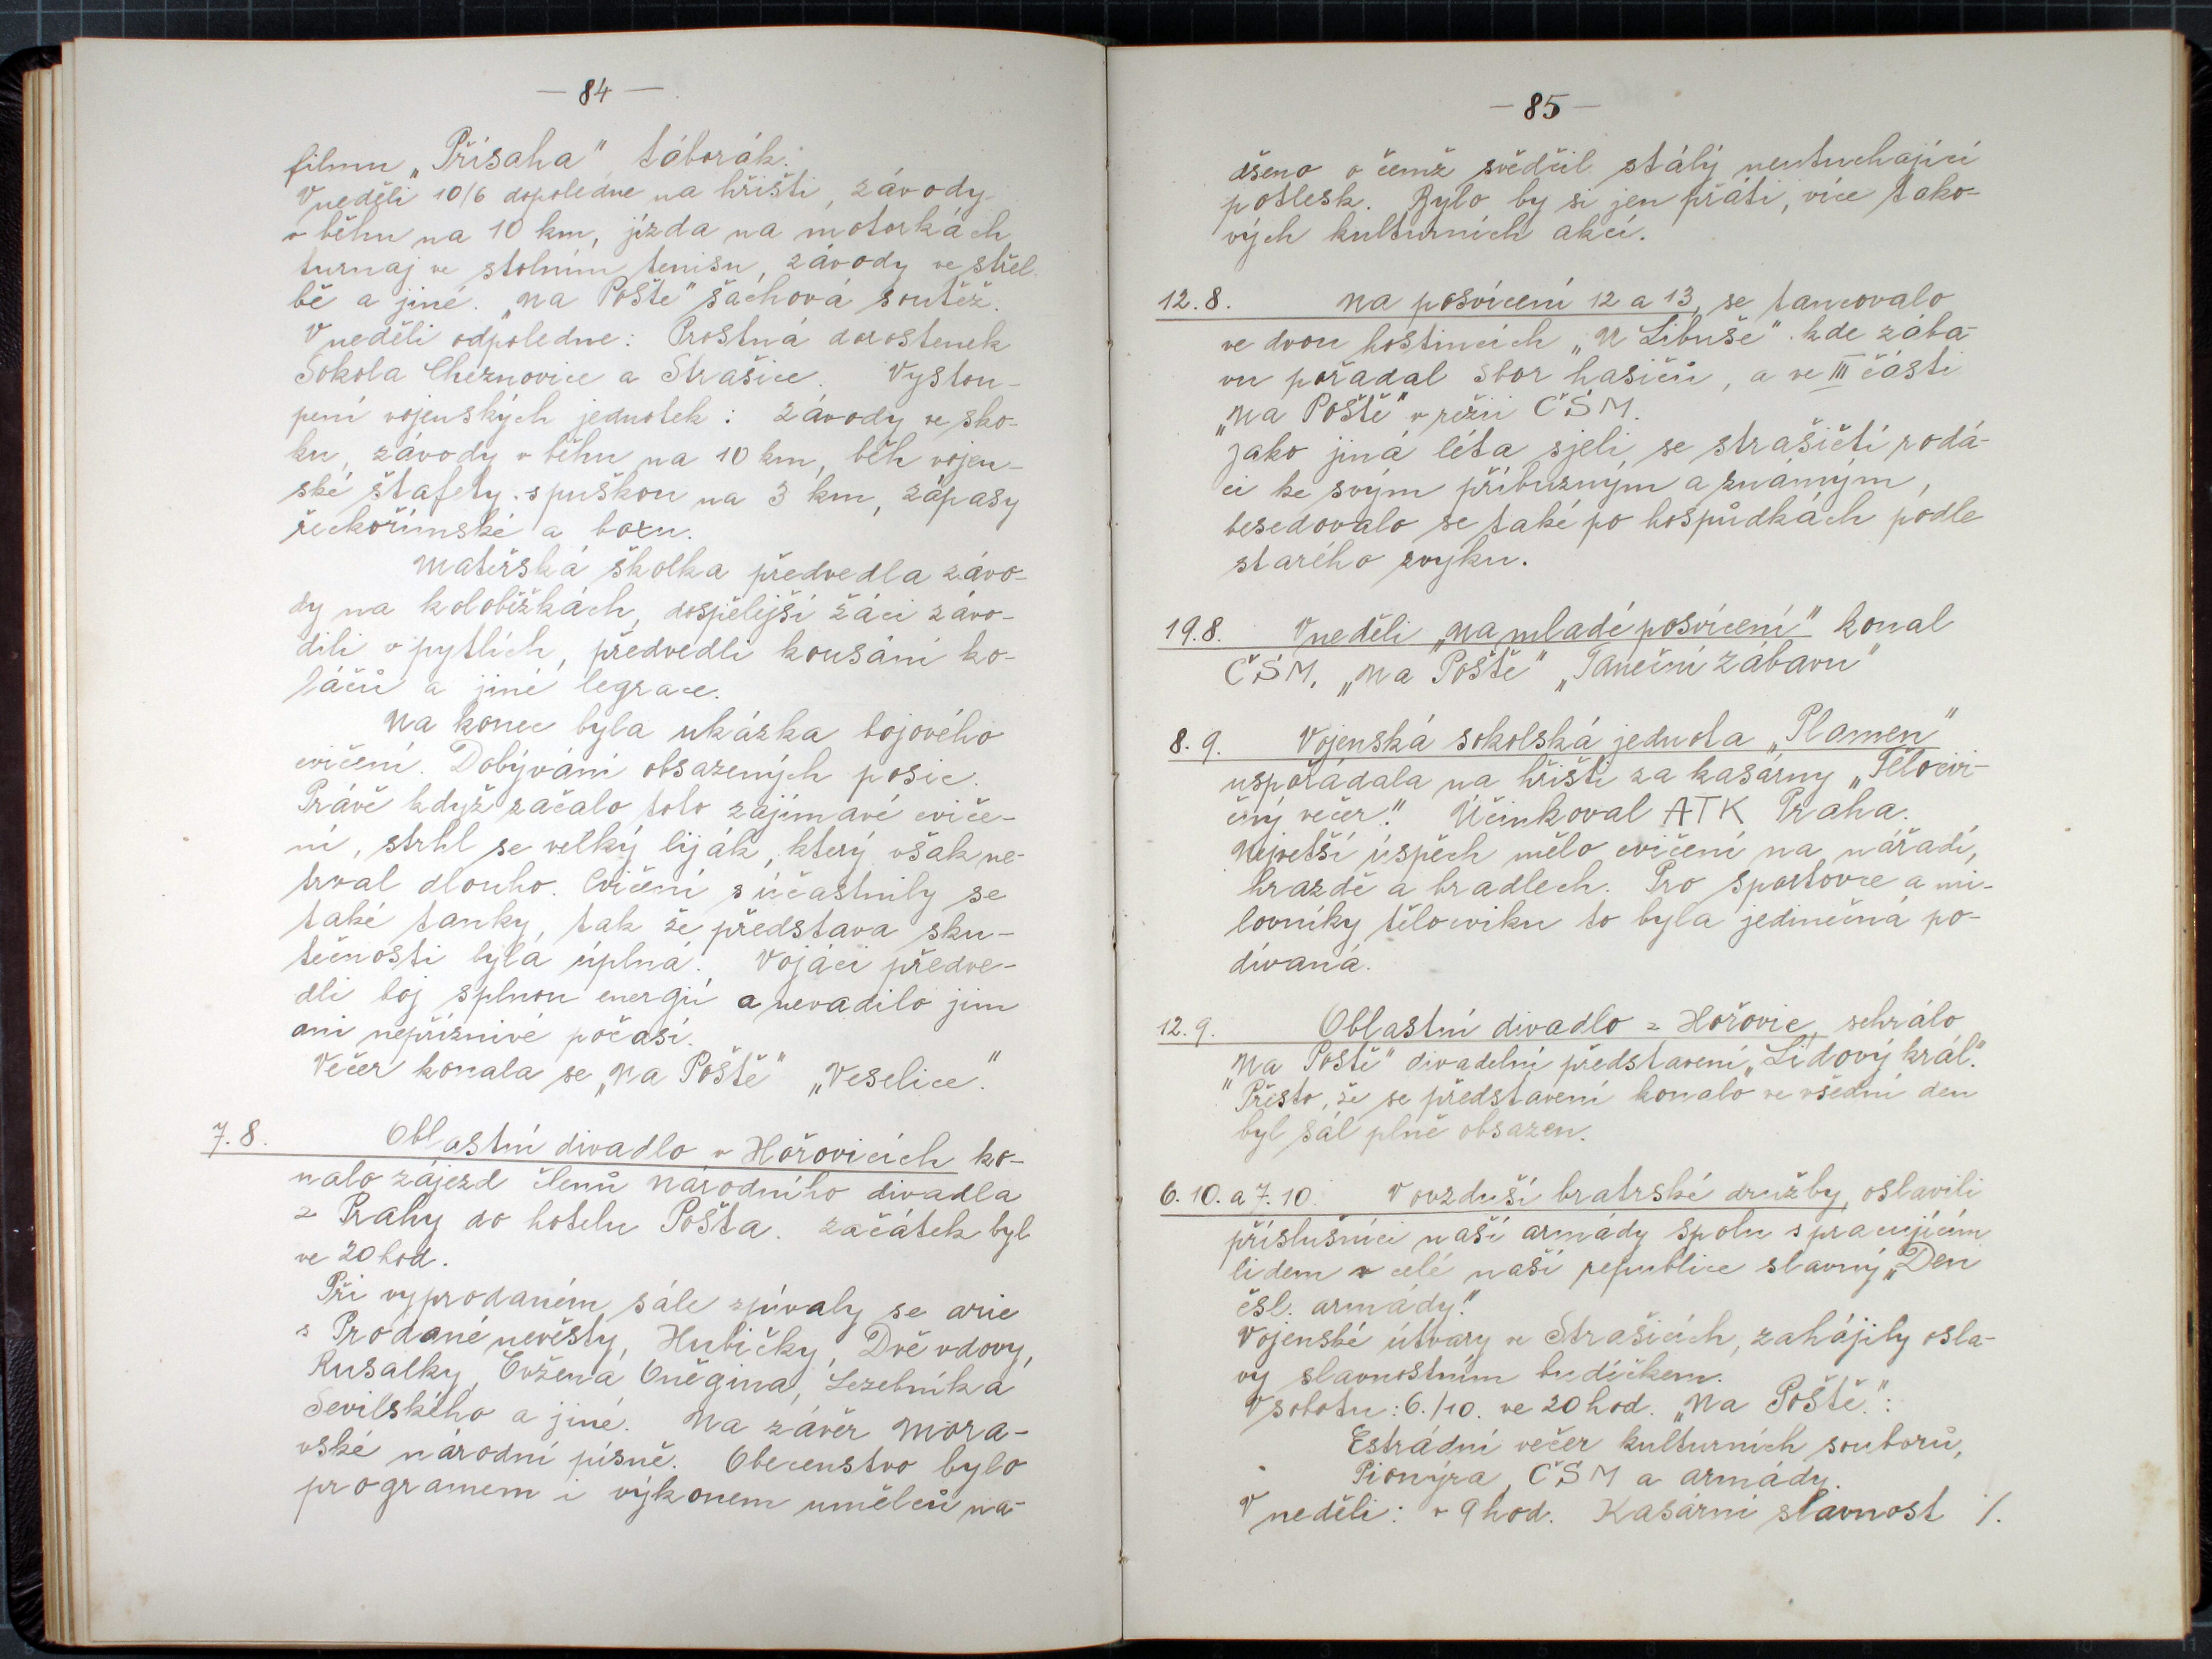 — 84 —
filmu „Přísaha" táborák.
V neděli 10/6 dopoledne na hřišti, závody
v běhu na 10 km, jízda na motorkách
turnaj ve stolním tenisu, závody ve střel
bě a jiné. „Na Poště" šachová soutěž.
V neděli odpoledne: Prostná dorostenek
Sokola Cheznovice a Strašice. Vystou-
pení vojenských jednotek: Závody ve sko-
ku, závody v běhu na 10 km, běh vojen-
ské štafety s puškou na 3 km, zápasy
řeckořímské a boxu.
Mateřská školka předvedla závo-
dy na koloběžkách, dospělejší žáci závo-
dili v pytlích, předvedli kousání ko-
láčů a jiné legrace.
Na konec byla ukázka bojového
cvičení. Dobývání obsazených posic.
Právě když začalo toto zajímavé cviče-
ní, strhl se velký liják, který však ne-
trval dlouho. Cvičení súčastnily se
také tanky, tak že představa sku-
tečnosti byla úplná. Vojáci předve-
dli boj s plnou energií a nevadilo jim
ani nepříznivé počasí.
Večer konala se „Na Poště" „Veselice".
7. 8. Oblastní divadlo v Hořovicích ko-
nalo zájezd členů Národního divadla
z Prahy do hotelu Pošta. Začátek byl
ve 20 hod.
Při vyprodaném sále zpívaly se arie
s Prodané nevěsty, Hubičky, Dvě vdovy,
Rusalky, Evžena Oněgina, Lezebníka
Sevilského a jiné. Na závěr Mora-
vské národní písně. Obecenstvo bylo
programem i výkonem umělců na-
— 85 —
dšeno o čemž svědčil stálý neutuchající
potlesk. Bylo by si jen přáti, více tako-
vých kulturních akcí.
12. 8. Na posvícení 12 a 13, se tancovalo
ve dvou hostincích „U Libuše". kde zába-
vu pořadal sbor hasičů, a ve III části
„Na Poště" v režii ČSM.
Jako jiná léta sjeli se strašičtí rodá-
ci ke svým příbuzným a známým,
besedovalo se také po hospůdkách podle
starého zvyku.
19. 8. V neděli „Na mladé posvícení" konal
ČSM, „Na Poště" „Taneční zábavu"
8. 9. Vojenská sokolská jednota „Plamen"
uspořádala na hřišti za kasárny „Tělocvi-
čný večer." Účinkoval ATK Praha.
Největší úspěch mělo cvičení na nářadí,
hrazdě a bradlech. Pro sportovce a mi-
lovníky tělocviku to byla jedinečná po-
dívaná.
12. 9. Oblastní divadlo z Hořovic, sehrálo
„Na Poště" divadelní představení „Lidový král".
Přesto, že se představení konalo ve všední den
byl sál plně obsazen.
6. 10. a 7. 10. V ovzduší bratrské družby, oslavili
příslušníci naší armády spolu s pracujícím
lidem v celé naší republice slavný „Den
čsl. armády".
Vojenské útvary ve Strašicích, zahájily osla-
vy slavnostním budíčkem.
V sobotu: 6./10. ve 20 hod. „Na Poště":
Estrádní večer kulturních souborů,
Pionýra, ČSM a armády.
V neděli: v 9 hod. Kasární slavnost /.